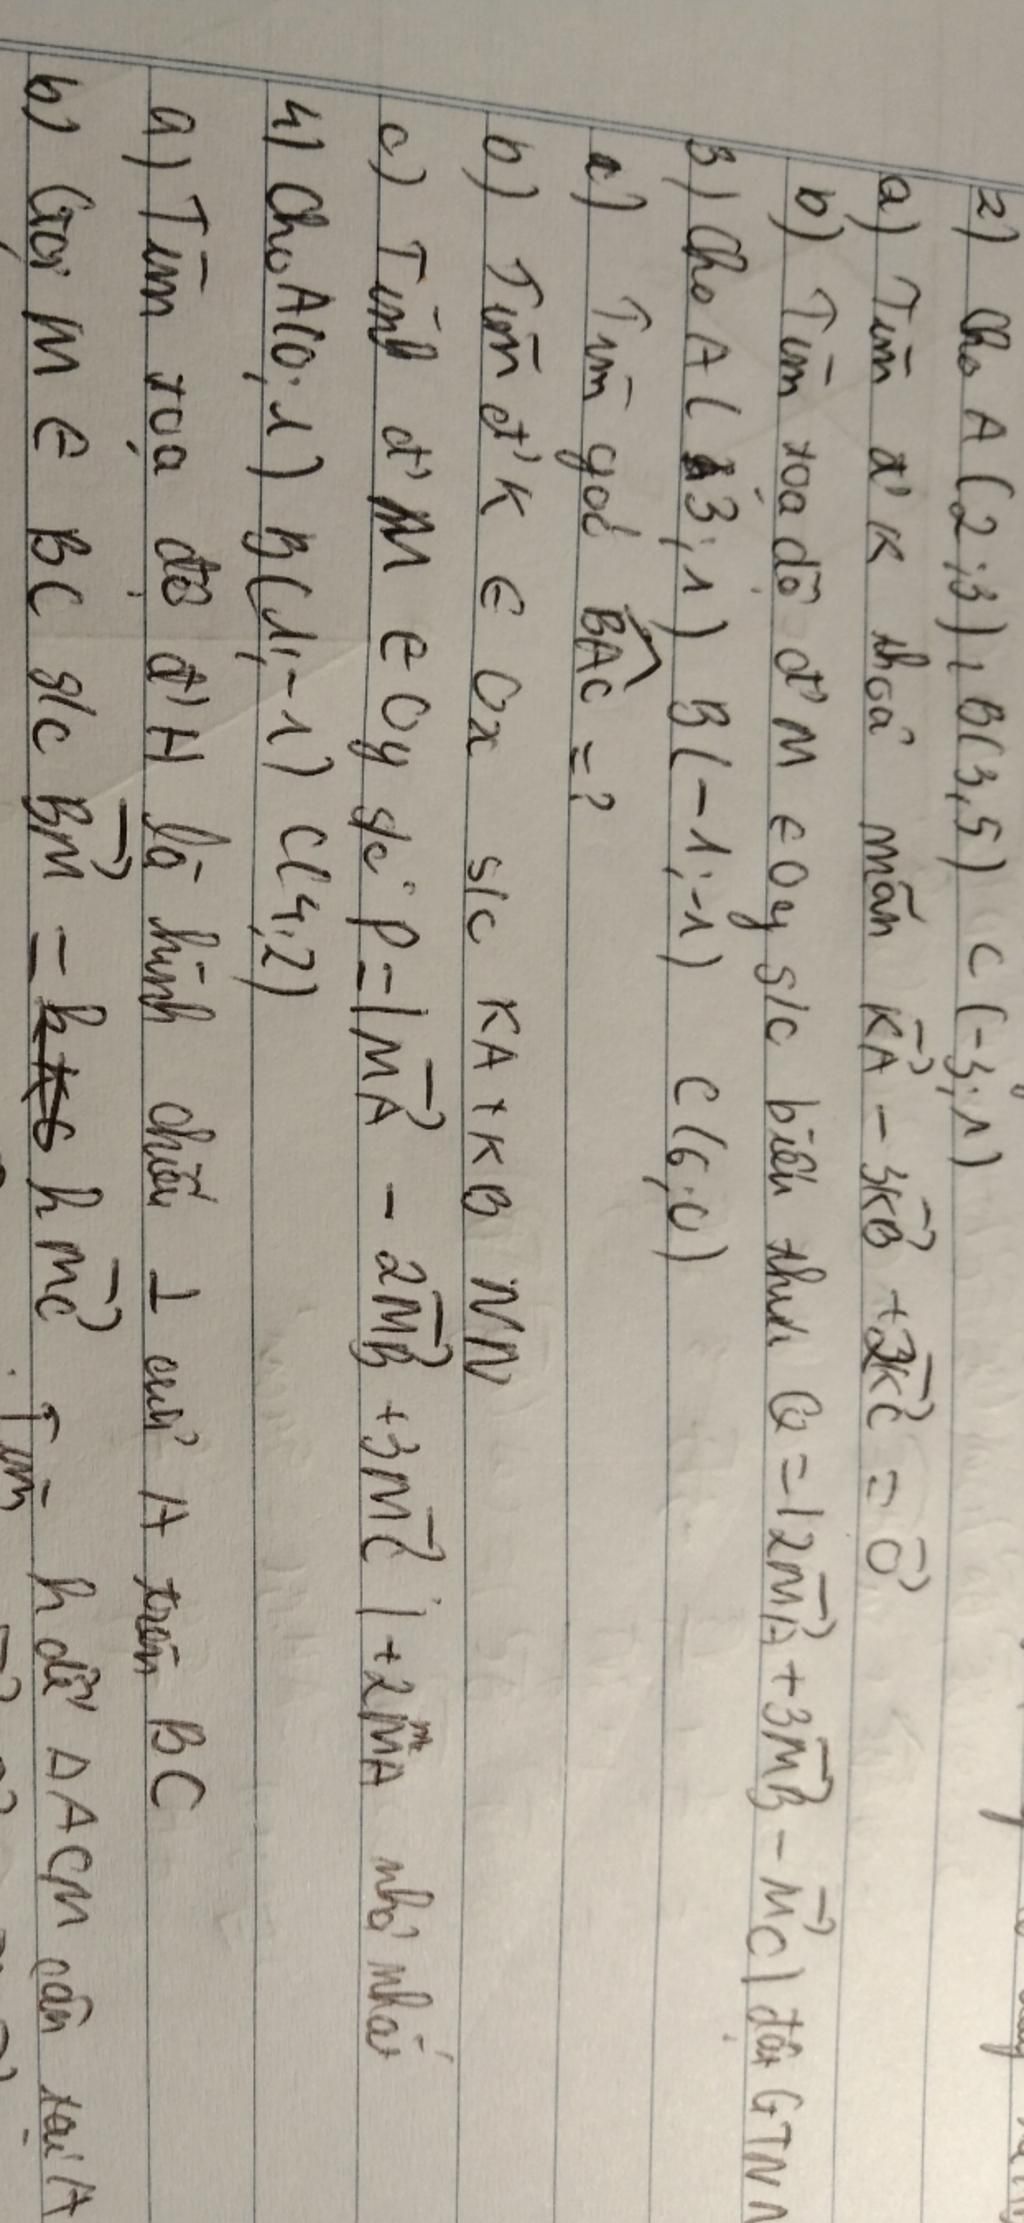 2) Cho A(2;3), B(3,5) C(-3;1)
a) Tìm đ' K thoả mãn KA→ - 3KB→ + 2KC→ = 0→
b) Tìm toạ độ đ' M ∈ Oy s/c biểu thức Q = |2MA→ + 3MB→ - MC→| đạt GTNN
3) Cho A(3;1) B(-1;-1) C(6;0)
a) Tìm góc BAC = ?
b) Tìm đ' K ∈ Ox s/c KA + KB NN
c) Tính đ' M ∈ Oy s/c P = |MA→ - 2MB→ + 3MC→| + 2MA nhỏ nhất
4) Cho A(0;1) B(1;-1) C(4,2)
a) Tìm toạ độ đ' H là hình chiếu ⊥ của A trên BC
b) Gọi M ∈ BC s/c BM→ = h MC→ Tìm h để Δ ACM cân tại A